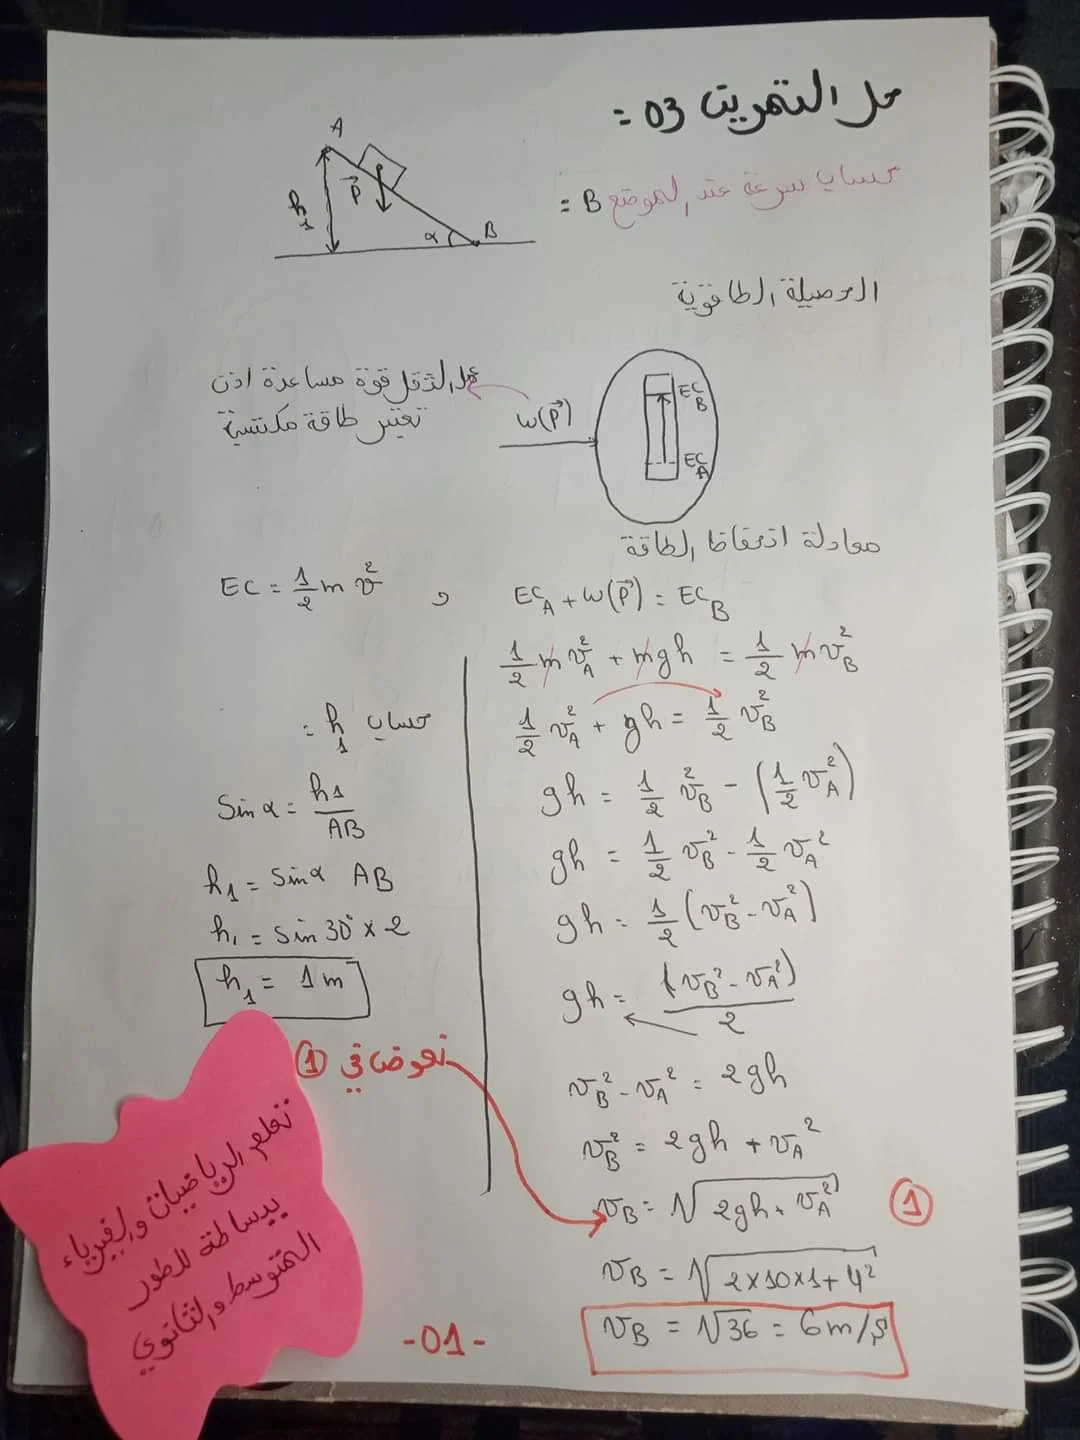 حل التمرين 03 =
حساب سرعة عند الموضع B =
A
h1
P
α
B
الحصيلة الطاقوية
عمل الثقل قوة مساعدة اذن
تعتبر طاقة مكتسبة
W(P)
EC B
EC A
معادلة انحفاظ الطاقة
EC = 1/2 m v² و EC_A + W(P) = EC_B
1/2 m v_A² + mgh = 1/2 m v_B²
1/2 v_A² + gh = 1/2 v_B²
gh = 1/2 v_B² - (1/2 v_A²)
gh = 1/2 v_B² - 1/2 v_A²
gh = 1/2 (v_B² - v_A²)
gh = (v_B² - v_A²) / 2
v_B² - v_A² = 2gh
v_B² = 2gh + v_A²
v_B = √(2gh + v_A²) ①
v_B = √(2×10×1 + 4²)
v_B = √36 = 6 m/s
حساب h1 =
Sin α = h1 / AB
h1 = Sin α AB
h1 = Sin 30° × 2
h1 = 1 m
نعوض في ①
تعلم الرياضيات والفيزياء
ببساطة للطور
المتوسط والثانوي
-01-